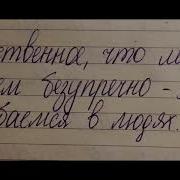 ственное, что м
ем безупречно -
баемся в людях.